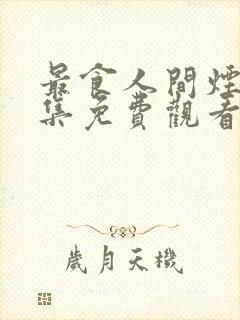 最食人間煙
集免費觀看
歲月天機